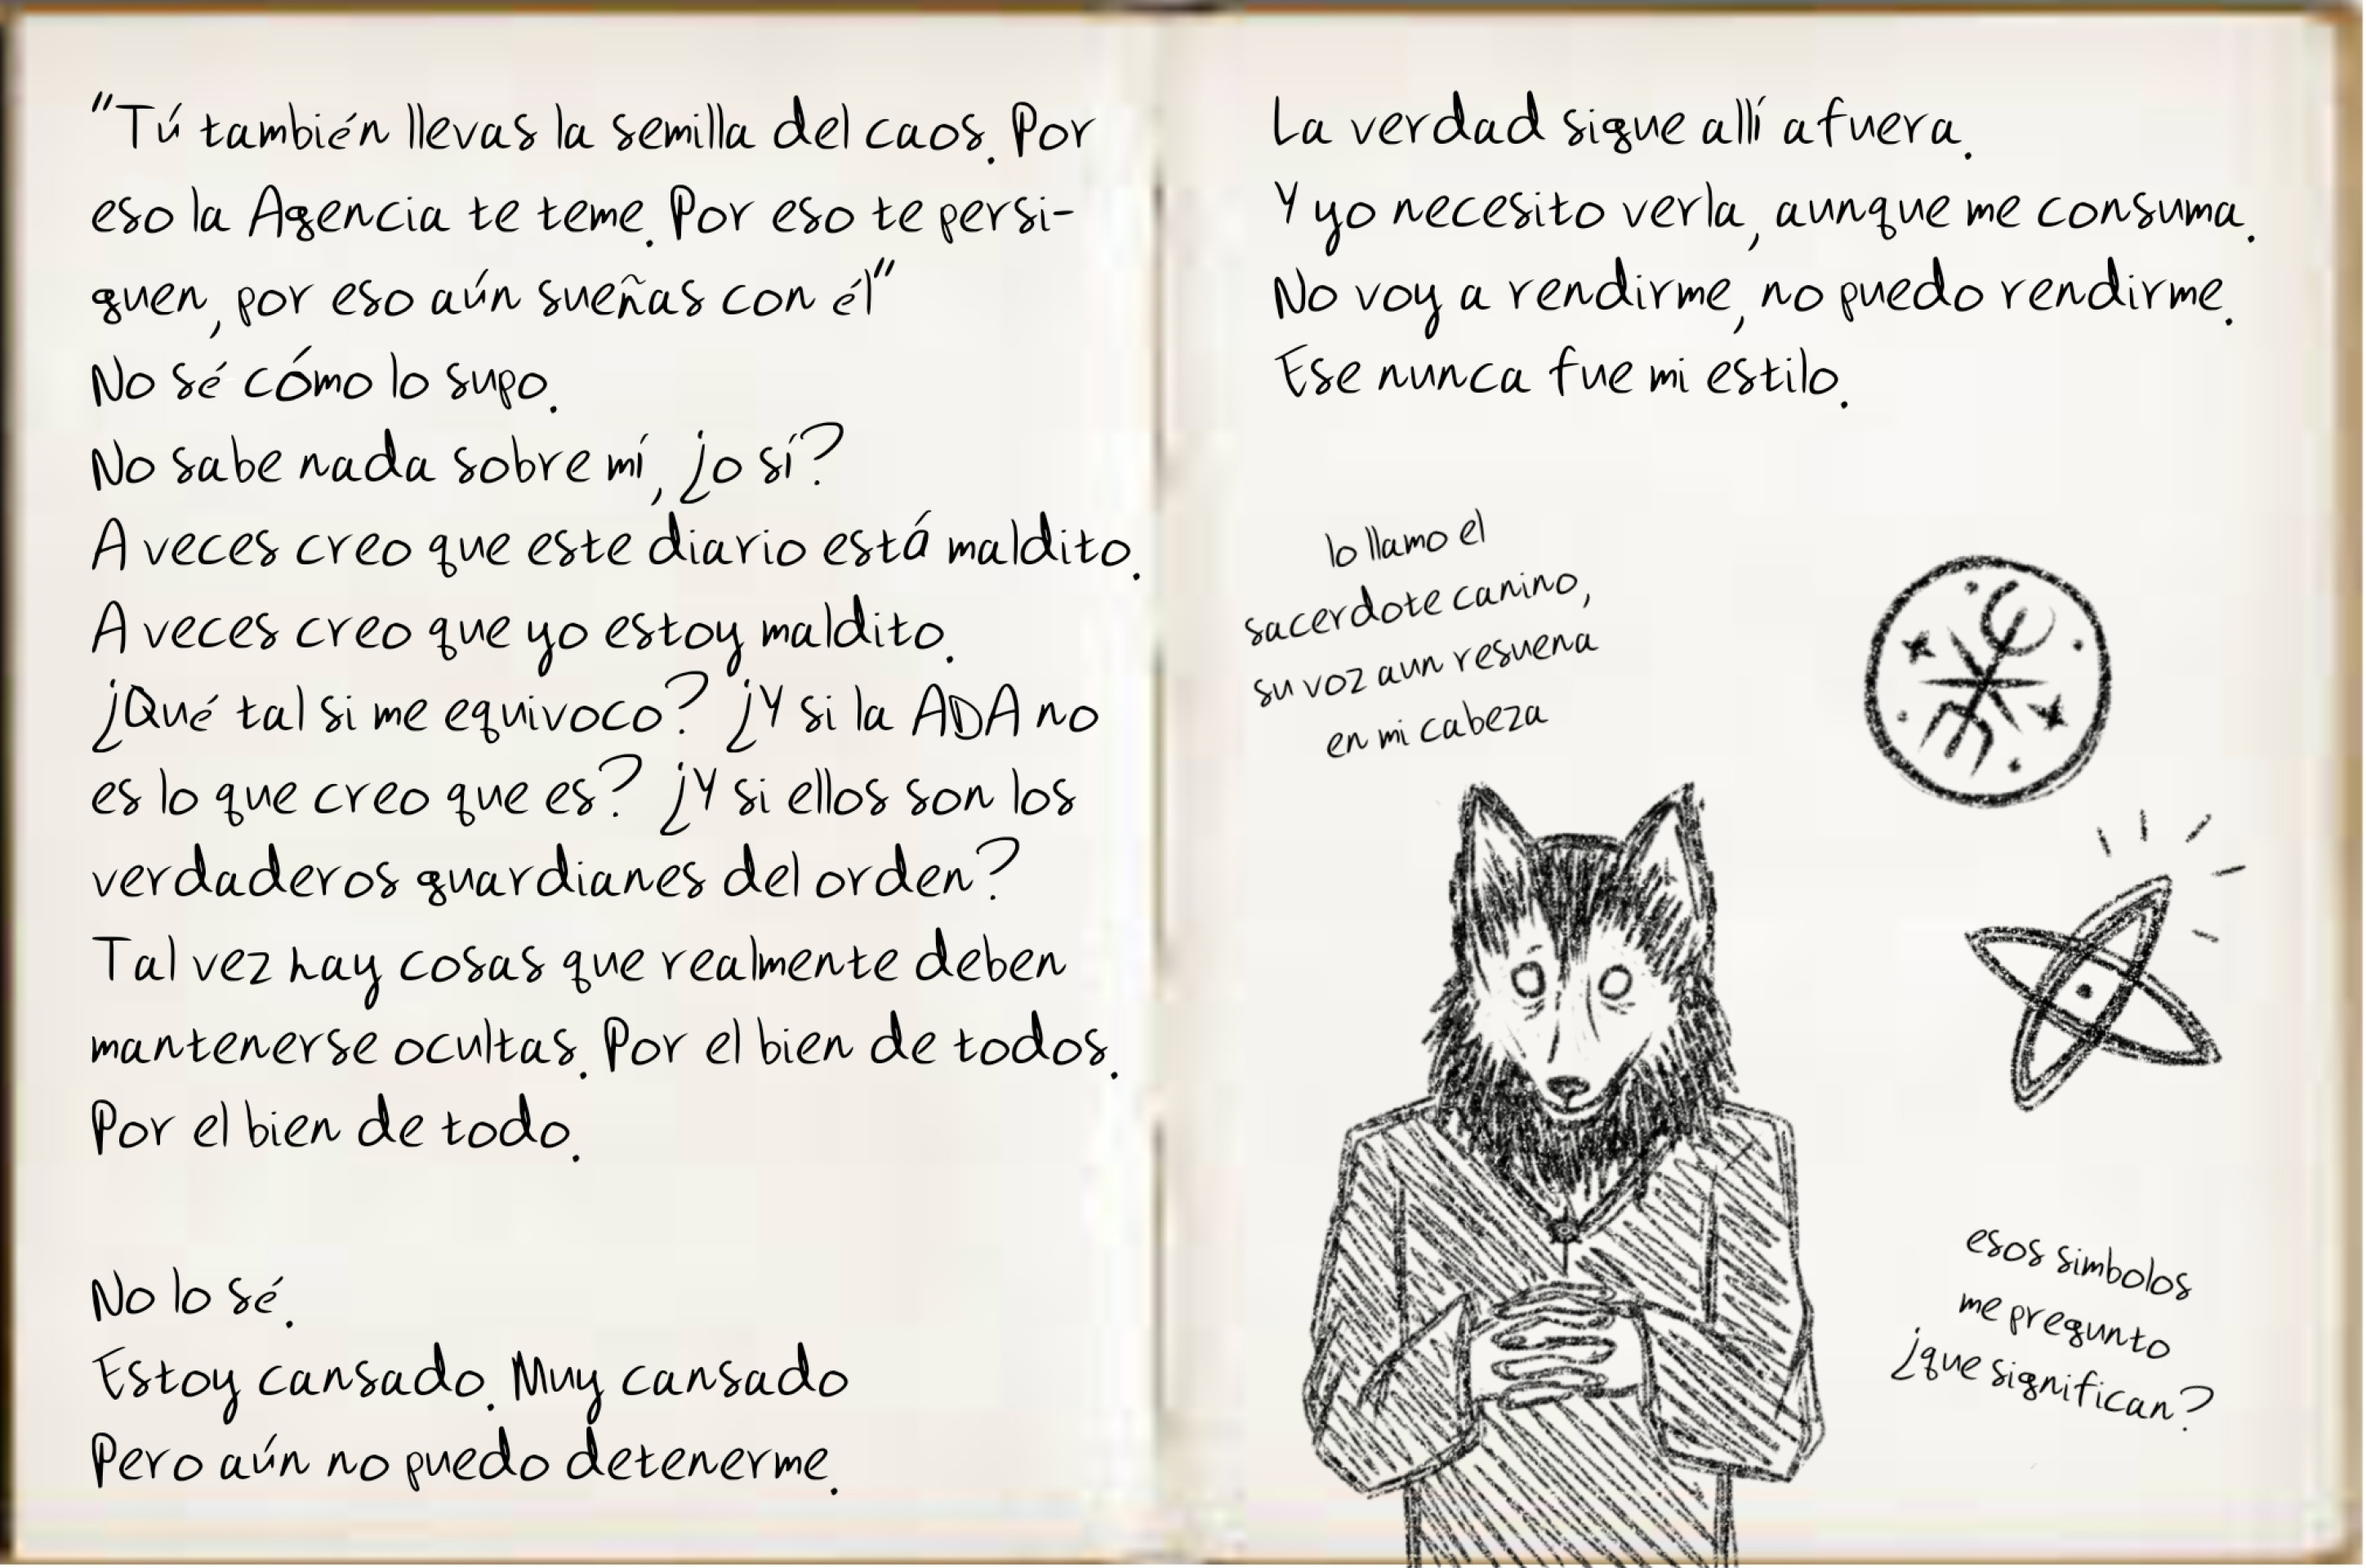 "Tú también llevas la semilla del caos. Por
eso la Agencia te teme. Por eso te persi-
guen, por eso aún sueñas con él"
No sé cómo lo supo.
No sabe nada sobre mí, ¿o sí?
A veces creo que este diario está maldito.
A veces creo que yo estoy maldito.
¿Qué tal si me equivoco? ¿Y si la ADA no
es lo que creo que es? ¿Y si ellos son los
verdaderos guardianes del orden?
Tal vez hay cosas que realmente deben
mantenerse ocultas. Por el bien de todos.
Por el bien de todo.
No lo sé.
Estoy cansado. Muy cansado
Pero aún no puedo detenerme.
La verdad sigue allí afuera.
Y yo necesito verla, aunque me consuma.
No voy a rendirme, no puedo rendirme.
Ese nunca fue mi estilo.
lo llamo el
sacerdote canino,
su voz aun resuena
en mi cabeza
esos simbolos
me pregunto
¿que significan?